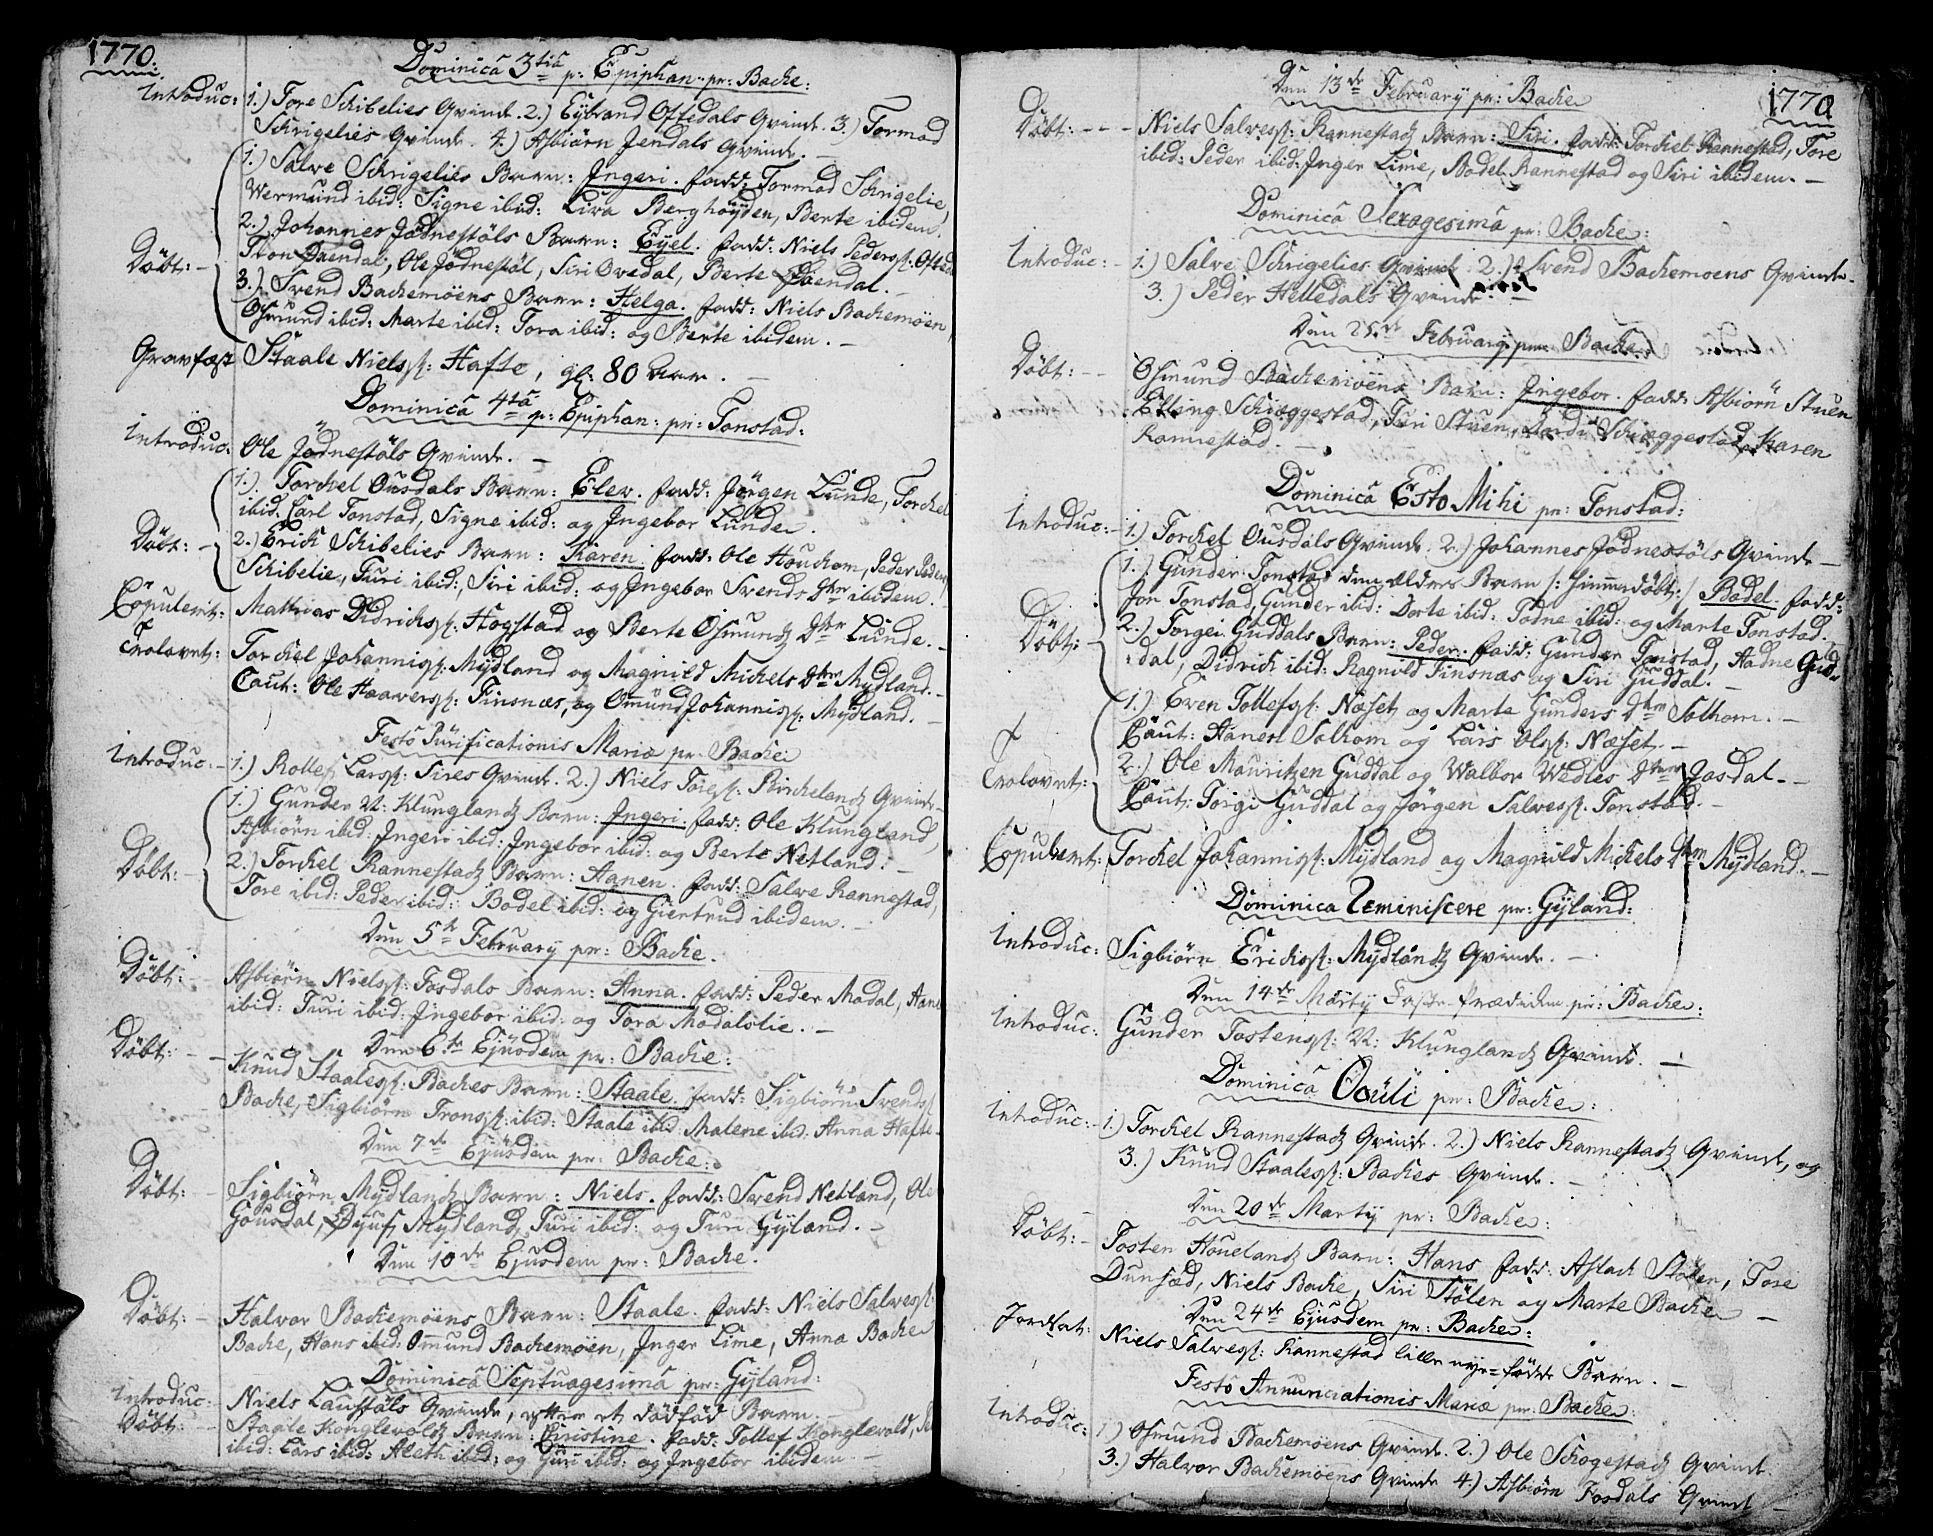 1770.
Dominica 3tia p: Epiphan: pr: Backe:
Introduc: 1.) Tore Schibelies Qvinde. 2.) Eybrand Oftedals Qvinde. 3.) Tormod
Schrigelies Qvinde. 4.) Asbiørn Jendals Qvinde. –
1.) Salve Schrigelies Barn: Ingeri. fadd: Tormod Schrigelie,
Wermund ibid: Signe ibid: Liva Berghöyden, Berte ibidem.
2.) Johannes Jödnestöls Barn: Eyel. fadd: Niels Peders: Ofted
Döbt: – Tron Daendal, Ole Jödnestöl, Siri Ovedal, Berte Daendal. –
3.) Svend Backemöens Barn: Helga. fadd: Niels Backemöen,
Osmund ibid: Marte ibid: Tora ibid: og Berte ibidem. –
Gravfæst Staale Niels: Hafte, gl: 80 Aar. –
Dominica 4ta p: Epiphan: pr: Tonstad:
Introduc: Ole Jödnestöls Qvinde. –
1.) Torchel Ousdals Barn: Elev. fadd: Jörgen Lunde, Torchel
ibid: Carl Tonstad, Signe ibid: og Ingebor Lunde.
Döbt: – 2.) Erick Schibelies Barn: Karen. fadd: Ole Houchom, Peder Peders
Schibelie, Turi ibid: Siri ibid: og Ingebor Svends Dtr ibidem. –
Copulert: Mathias Didrichs: Hogstad og Berte Osmunds Dtr Lunde. –
Trolovet: Torchel Johannis: Mydland og Magnild Michels Dtr Mydland. –
Caut: Ole Haavers: Finsnæs, og Omund Johannis: Mydland. –
Festo Purificationis Mariæ pr: Backe
Introduc: – 1.) Rollef Lars: Sires Qvinde. 2.) Niels Tores: Birchelands Qvinde –
1.) Gunder N: Klunglands Barn: Ingeri. fadd: Ole Klungland,
Asbiörn ibid: Ingeri ibid: Ingebor ibid: og Berte Netland. –
Döbt: – 2.) Torchel Rannestads Barn: Aanen. fadd: Salve Rannestad,
Tore ibid: Peder ibid: Bodel ibid: og Giertrud ibidem. –
Den 5te February pr: Backe.
Döbt: – Asbiörn Niels: Fosdals Barn: Anna. fadd: Peder Modal, Aane
ibid: Turi ibid: Ingebor ibid: og Tora Modalslie. –
Den 6te Ejusdem pr: Backe:
Döbt: – – Knud Staales: Backes Barn: Staale. fadd: Sigbiörn Svends:
Backe, Sigbiörn Trons: ibid: Staale ibid: Malene ibid: Anna Hafte –
Den 7de Ejusdem pr: Backe:
Döbt: – Sigbiörn Mydlands Barn: Niels. fadd: Svend Netland, Ole
Gousdal, Mydland, Turi ibid: og Turi Gyland. –
Den 10de Ejusdem pr: Backe.
Döbt: – Halvor Backemöens Barn: Staale. fadd: Niels Salves:
Backe, Hans ibid: Omund Backemöen, Inger Lime, Anna Backe
Dominica Septuagesima pr: Gyland:
Introduc: Niels Laustöls Qvinde, efter et dödföd Barn. –
Döbt: – Staale Konglevolds Barn: Christine. fadd: Tollef Konglevold,
ibid: Lars ibid: Aleth ibid: og Guri ibid: og Ingebor ibidem. –
1770
Den 13de February pr: Backe
Döbt: – – – Niels Salves: Rannestads Barn: Siri. fadd: Torchel Rannestad, Tore
ibid: Peder ibid: Inger Lime, Bodel Rannestad og Siri ibidem. –
Dominica Sexagesima pr: Backe:
Introduc: – 1.) Salve Schrigelies Qvinde 2.) Svend Backemoens Qvinde –
3.) Peder Helledals Qvinde. –
Den 25de February pr: Backe
Döbt: – – Osmund Backemöens Barn: Ingebor. fadd: Asbiörn Stuen
Elling Schieggestad, Turi Stuen, Schieggestad, Karen
Rannestad. –
Dominica Esto Mihi pr: Tonstad:
Introduc: – 1.) Torchel Ousdals Qvinde. 2.) Johannes Jödnestöls Qvinde –
1.) Gunder Tonstad den ældres Barn /: himedöbt :/ Bodel. fadd:
Jon Tonstad, Gunder ibid: Dorte ibid: Todne ibid: og Marte Tonstad.
Döbt: – 2.) Torgei Guddals Barn: Peder. fadd: Gunder Tonstad, Aadne Gud-
dal, Didrich ibid: Ragnild Finsnæs og Siri Guddal. –
1.) Even Tollefs: Næset og Marte Gunders Dtr Solhom. –
Caut: Aanen Solhom og Lars Ols: Næset. –
Trolovet: 2.) Ole Mauritzen Guddal og Walbor Wedles Dtr Josdal. –
Caut: Torgi Guddal og Jörgen Salves: Tonstad. –
Copulert: Torchel Johannis: Mydland og Magnild Michels Dtr Mydland. –
Dominica Reminiscere pr: Gyland:
Introduc: Sigbiörn Ericks: Mydlands Qvinde. –
Den 14de Marty Faste Prædiken pr: Backe:
Introduc: Gunder Tostens: N: Klunglands Qvinde. –
Dominica Oculi pr: Backe:
Introduc: – 1.) Torchel Rannestads Qvinde. 2.) Niels Rannestads Qvinde, og
3.) Knud Staales: Backes Qvinde. –
Den 20de Marty pr: Backe:
Döbt: – Tosten Houelands Barn: Hans. fadd: Aslach Stölen, Tore
Dunsæd, Niels Backe, Siri Stölen og Marte Backe –
Den 24de Ejusdem pr: Backe:
Jordkat: Niels Salves: Rannestad lille nye-födde Barn. –
Festo Annunciationis Mariæ pr: Backe:
Introduc: 1.) Osmund Backemoens Qvinde. 2.) Ole Schogestads Qvinde.
3.) Halvor Backemoens Qvinde 4.) Asbiörn Fosdals Qvinde –